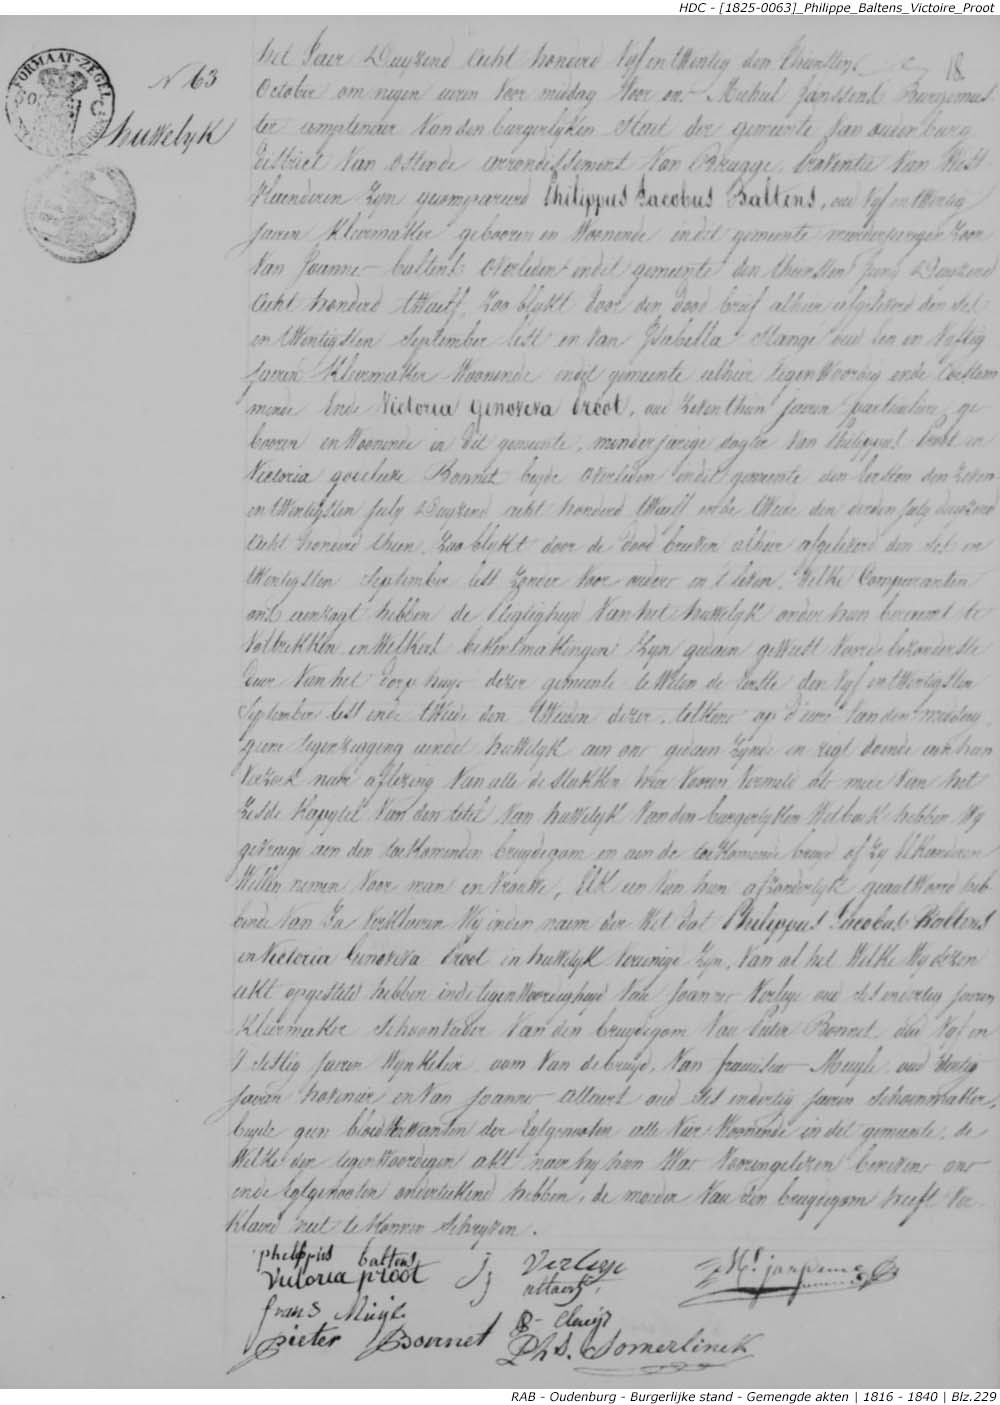 HDC - [1825-0063]_Philippe_Baltens_Victoire_Proot
FORMAAT-ZEGEL
N 63
huwelyk
18
het Jaer Duyzend Acht honderd Vyf en twintig den thiensten
October om negen uren voor middag Voor ons Michiel Janssens Burgemees-
ter van den burgerlyken Staet der gemeente van oudenburg
district van Ostende arrondissement van Brugge, Provintie van West
Vlaenderen Zyn gecompareerd Philippus Jacobus Baltens, oud Vyf en twintig
Jaren Kleermaker gebooren en Woonende in dit gemeente meerderjarigen Zoon
Van Joannes Baltens Overleden in dit gemeente den thiensten Juny Duyzend
Acht honderd twaelf, Zoo blykt door den dood brief alhier afgeleverd den ses
en twintigsten September lest en van Isabella Stange oud een en Vyftig
Jaren Kleermaker Woonende in dit gemeente alhier tegenwoordig ende toestem
mende Ende Victoria Genoveva Proot, oud Zeventhien Jaren particuliere ge
booren en Woonende in dit gemeente, minderjarige dogter van Philippus Proot en
Victoria godelieve Bonnet beyde overleden in dit gemeente den eersten den Zeven
en twintigsten July Duyzend acht honderd twaelf ende twede den derden July duyzend
Acht honderd thien, Zoo blykt door de dood brieven alhier afgeleverd den ses en
twintigsten September lest Zonder Voor ouders in 't leven, Welke Comparanten
ons aenzogt hebben de van het huwelyk onder hun beraemt te
Voltrekken en welkers bekentmakingen Zyn gedaen geweest Voor de bezonderste
Deur van het dorp huys dezer gemeente te Weten de eerste den Vyf en twintigsten
September lest ende twede den tweeden dezer, telkens op d'ure van den middag,
geene tegenzegging aendit huwelyk aen ons gedaen Zynde en regt doende aen hun
Verzoek naer aflezing van alle de stukken hier Vooren Vermeld als mede van het
Zesde Kapittel van den titel van huwelyk van den burgerlyken Wetboek hebben Wy
gevraegd aen den toekomenden bruydegom en aen de toekomende bruyd of Zy Elkanderen
Willen nemen Voor man en Vrouwe, Elk een van hun afzonderlyk geantWoord heb-
bende van Ja Verklaeren Wy in den naem der Wet dat Philippus Jacobus Baltens
en Victoria Genoveva Proot in huwelyk Vereenigd Zyn, Van al het Welke Wy dezen
akt opgesteld hebben in de tegenwoordigheyd van Joannes Verleye oud ses en dertig Jaren
Kleermaker Schoonvader van den bruydegom Van Pieter Bonnet, oud Vyf en
Sestig Jaren Wynkelier oom van de bruyd, Van Franciscus Muyle oud Jaren hovenier en van Joannes Allaert oud ses en dertig Jaren schoenmaker,
beyde geen bloedverwanten der Egtgenooten alle Vier Woonende in dit gemeente, de
Welke den tegenwoordigen akt naer hy hun was Voorengelezen benevens ons
ende Egtgenooten onderteekend hebben, de moeder van den bruydegom heeft Ver
klaerd niet te konnen Schryven.
phelippus baltens
Victoria proot
frans Muijle
pieter Bonnet
Verleye
allaert
Phs. Somerlinck
M. janssens
RAB - Oudenburg - Burgerlijke stand - Gemengde akten | 1816 - 1840 | Blz.229